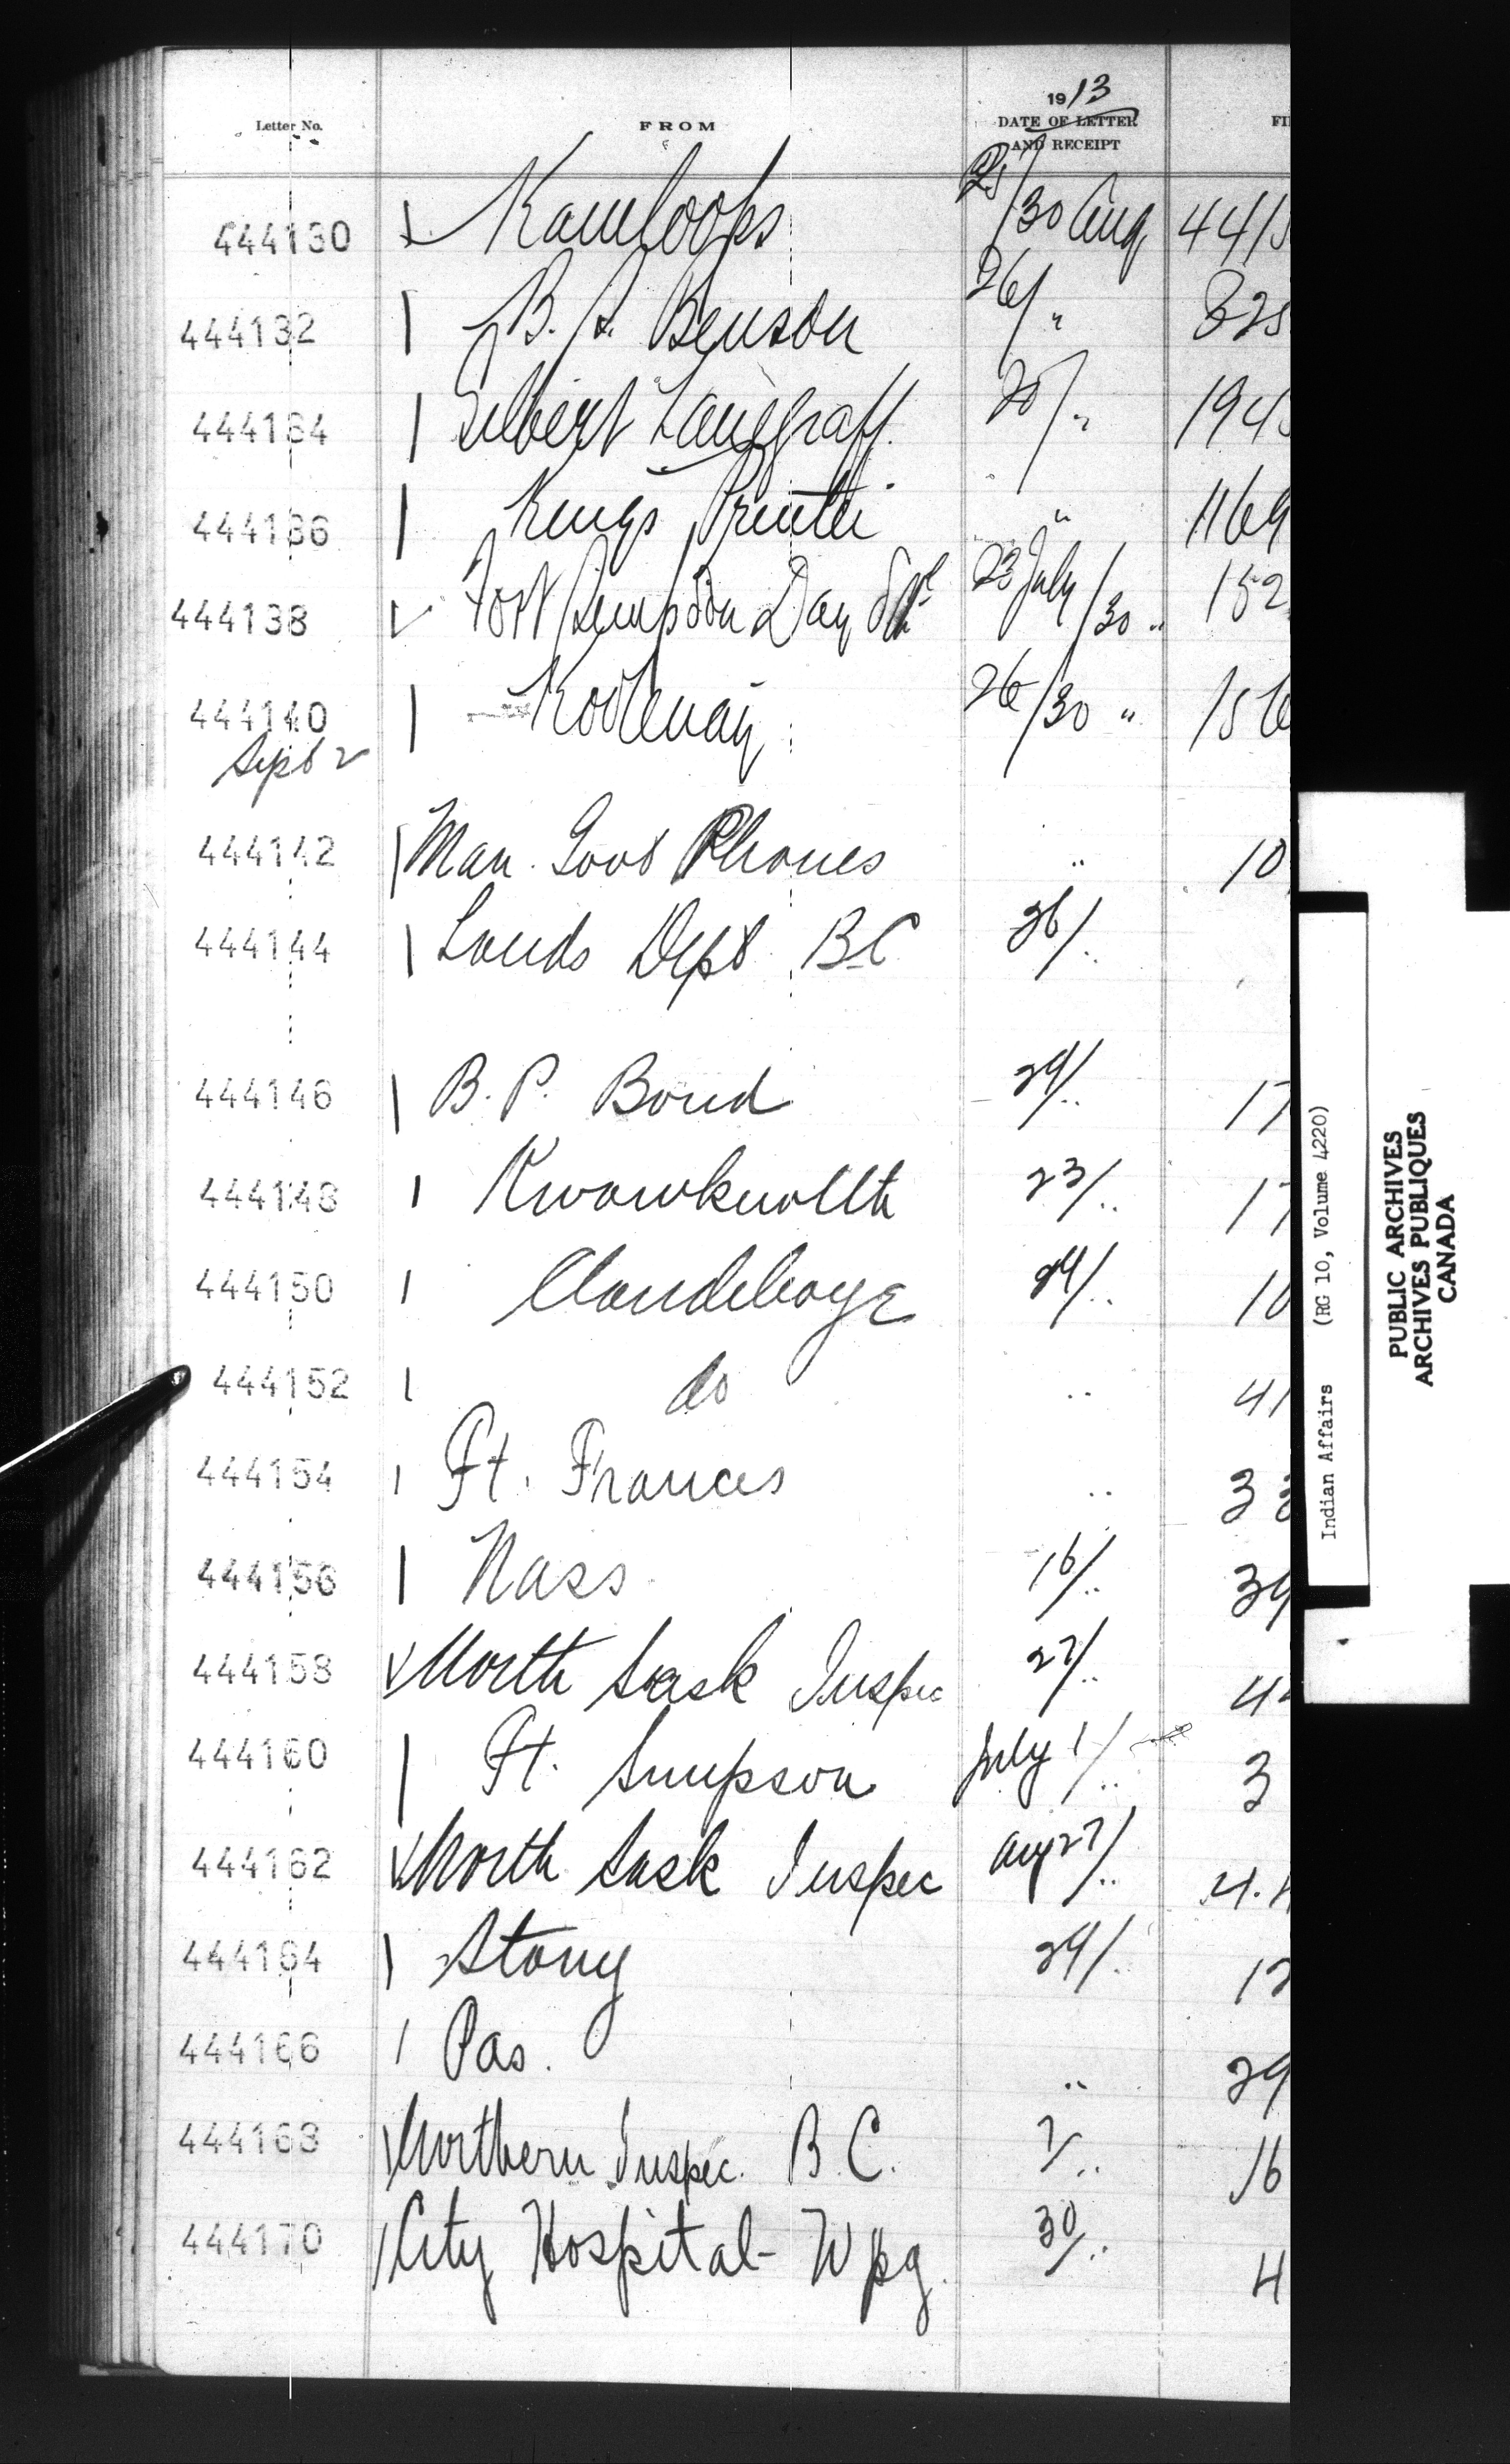 1913
Letter No. FROM DATE OF LETTER AND RECEIPT FI
444130 Kamloops 25/30 Aug 4415
444132 B. A. Benson 26/ " 325
444134 Gilbert 20/ " 1945
444136 Kings Printer " 1169
444138 Fort Simpson Day Schl 23 July/30 " 152
444140 Kootenay 26/30 " 156
Sept 2
444142 Man. Govt Phones " 10
444144 Lands Dept BC 26/ "
444146 B. P. Bond 29/ " 17
444148 Kwawkewlth 23/ " 17
444150 Clandeboye 29/ " 10
444152 do " 41
444154 Ft. Frances " 33
444156 Nass 16/ " 39
444158 North Sask Inspec 27/ " 44
444160 Ft. Simpson July 1/ " 3
444162 North Sask Inspec Aug 27/ " 44
444164 Stony 29/ " 12
444166 Pas. " 29
444168 Northern Inspec. B.C. 7/ " 16
444170 City Hospital- Wpg. 30/ " 4
Indian Affairs (RG 10, Volume 4220)
PUBLIC ARCHIVES
ARCHIVES PUBLIQUES
CANADA